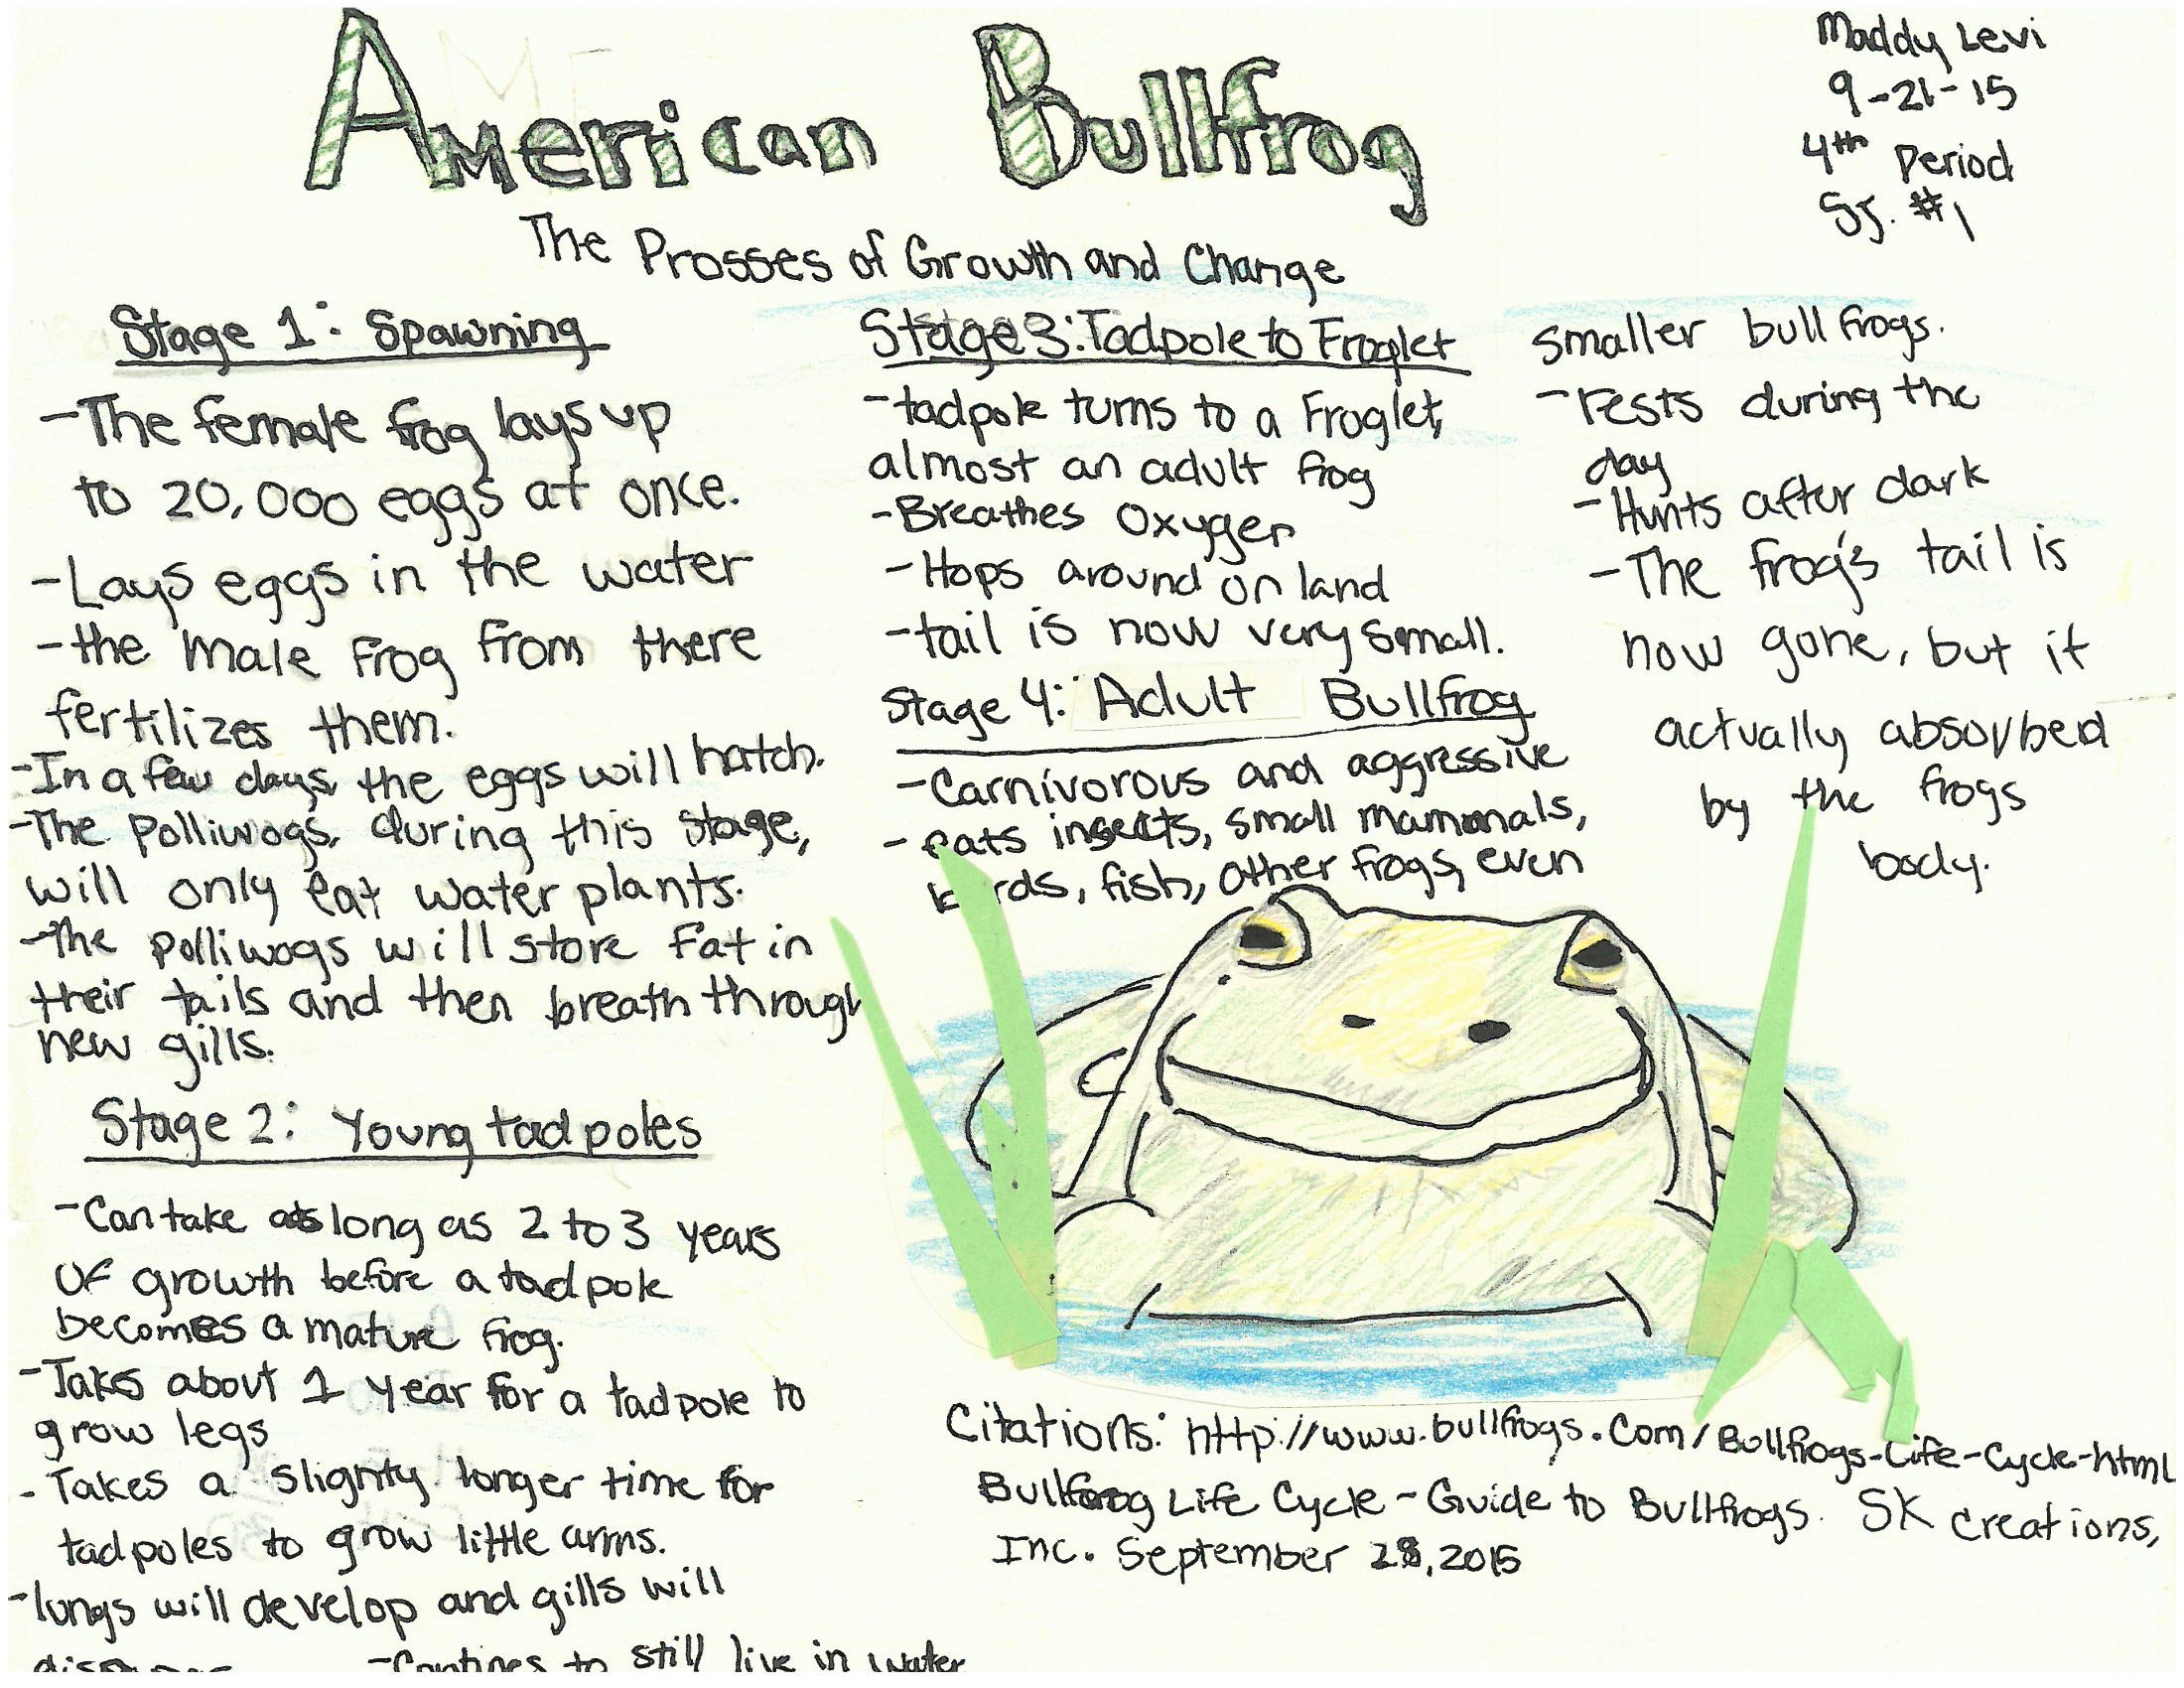 American Bullfrog
Maddy Levi
9-21-15
4th Period
SJ. #1
The Prosses of Growth and Change
Stage 1: Spawning
-The female frog lays up
to 20,000 eggs at once.
-Lays eggs in the water
-the male frog from there
fertilizes them.
-In a few days the eggs will hatch.
-The polliwogs, during this stage,
will only eat water plants.
-The polliwogs will store fat in
their tails and then breath through
new gills.
Stage 2: Young tadpoles
-Can take as long as 2 to 3 years
of growth before a tadpole
becomes a mature frog.
-Takes about 1 year for a tadpole to
grow legs
-Takes a slighty longer time for
tadpoles to grow little arms.
-lungs will develop and gills will
-Contines to still live in water
Stage 3: Tadpole to Froglet
-tadpole turns to a Froglet,
almost an adult frog
-Breathes Oxygen
-Hops around on land
-tail is now very small.
Stage 4: Adult Bullfrog
-Carnivorous and aggressive
-eats insects, small mammals,
birds, fish, other frogs, even
smaller bullfrogs.
-rests during the
day
-Hunts after dark
-The frog's tail is
now gone, but it
actually absorbed
by the frogs
body.
Citations: http://www.bullfrogs.com/Bullfrogs-Life-Cycle-html
Bullfrog Life Cycle - Guide to Bullfrogs. SK creations,
Inc. September 28, 2015